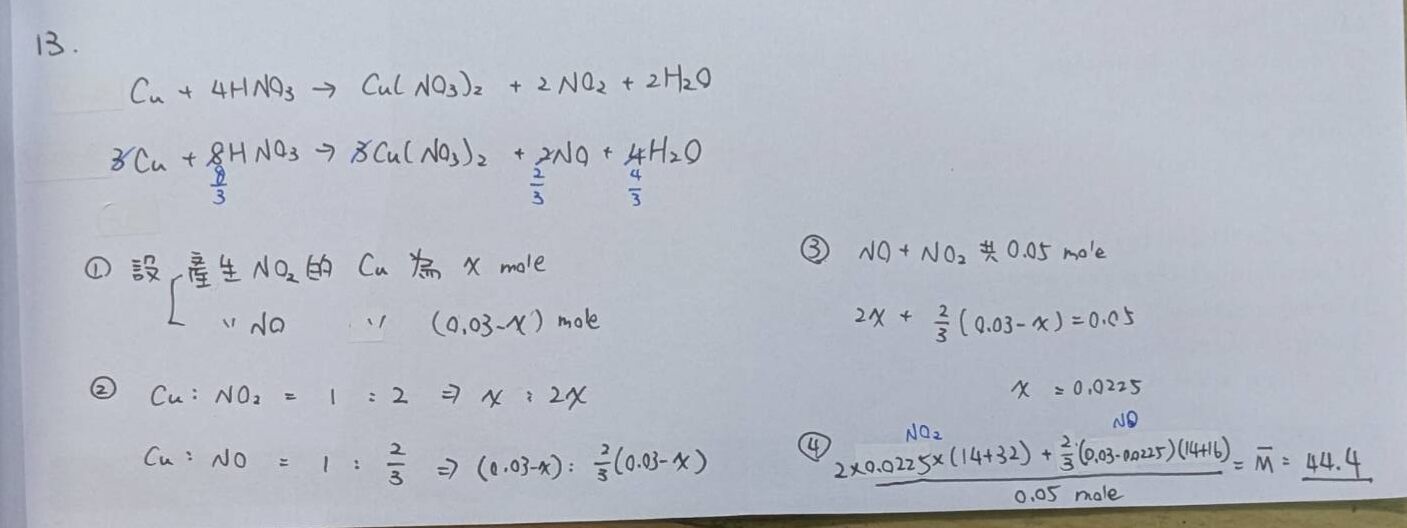 13.
Cu + 4HNO3 → Cu(NO3)2 + 2NO2 + 2H2O
3Cu + 8HNO3 → 3Cu(NO3)2 + 2NO + 4H2O
8/3 2/3 4/3
① 設 產生 NO2 的 Cu 為 x mole
〃 NO 〃 (0.03-x) mole
② Cu : NO2 = 1 : 2 ⇒ x : 2x
Cu : NO = 1 : 2/3 ⇒ (0.03-x) : 2/3(0.03-x)
③ NO + NO2 共 0.05 mole
2x + 2/3(0.03-x) = 0.05
x = 0.0225
NO2 NO
④ 2×0.0225×(14+32) + 2/3·(0.03-0.0225)(14+16) = M̄ = 44.4
0.05 mole